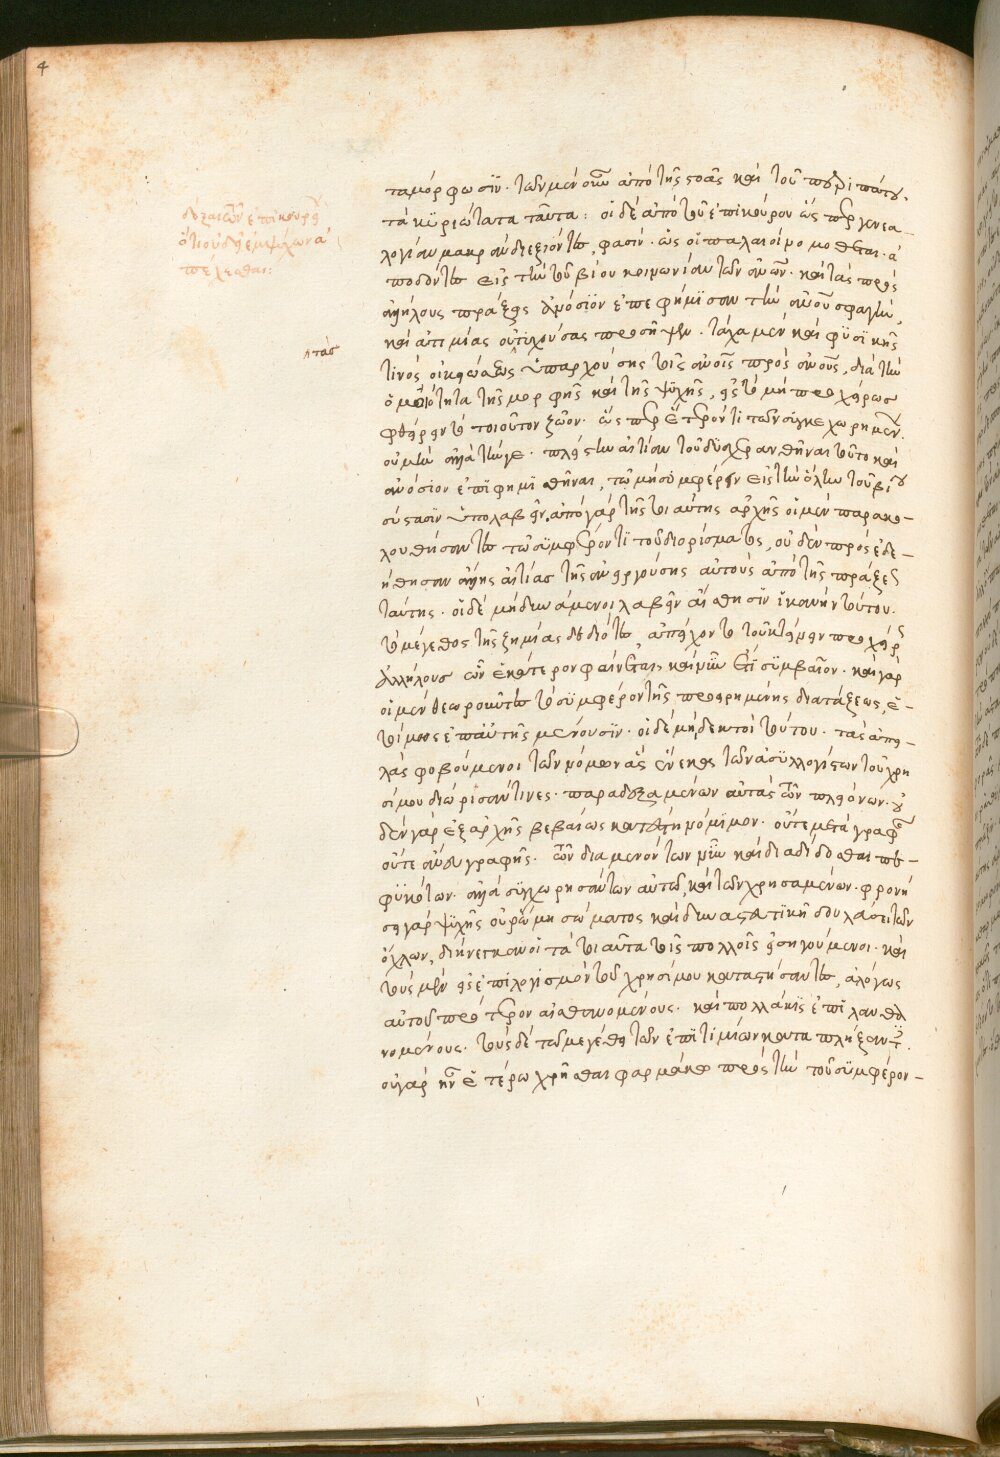 4
ταμόρφωσϊν. τῶν μὲν οὖν ἀπὸ τῆς στοᾶς καὶ τοῦ περιπάτου.
τὰ κϋριώτατα ταῦτα: οἱ δὲ ἀπὸ τοῦ ἐπικούρου ὥσπερ γενεα-
λογίαν μακρὰν διεξιόντες, φασὶν. ὡς οἱ παλαιοὶ νομοθέται. ἀ
ποδόντες εἰς τὴν τοῦ βίου κοινωνίαν τῶν ἀνθρώπων. καὶ τὰς πρὸς
ἀλλήλους πράξεις ἀνόσϊον ἐπεφήμϊσαν τὴν ἀνθρώπου σφαγὴν,
καὶ ἀτιμίας οὐ τυχούσας προσῆψαν. τάχα μὲν καὶ φϋσϊκῆς
τινὸς οἰκειώσεως ὑπαρχούσης τοῖς ἀνθρώποις πρὸς ἀνθρώπους, διὰ τὴν
ὁμοιότητα τῆς μορφῆς καὶ τῆς ψϋχῆς, εἰς τὸ μὴ προχείρως
φθείρειν τὸ τοιοῦτον ζῶον. ὥσπερ ἕτερόν τι τῶν σϋγκεχωρημένων.
οὐ μὴν ἀλλὰ τήν γε. πλείστην αἰτίαν τοῦ δϋσχερανθῆναι τοῦτο καὶ
ἀνόσϊον ἐπϊφημϊσθῆναι, τῶ μὴ σϋμφέρειν εἰς τὴν ὅλην τοῦ βίου
σύστασϊν ὑπολαβεῖν, ἀπὸ γὰρ τῆς τοιαύτης ἀρχῆς οἱ μὲν παρακο-
λουθήσαντες τῶ σϋμφέροντϊ τοῦ διορίσματος, οὐδὲν προσεδε-
ήθησαν ἄλλης αἰτίας τῆς ἀνειργούσης αὐτοὺς ἀπὸ τῆς πράξεως
ταύτης. οἱ δὲ μὴ δυνάμενοι λαβεῖν αἴσθησϊν ἱκανὴν τούτου.
τὸ μέγεθος τῆς ζημίας δεδιότες, ἀπείχοντο τοῦ κτείνειν προχείρως
ἀλλήλους ὧν ἑκάτερον φαίνεται, καὶ νῦν ἔτι σϋμβαῖνον. καὶ γὰρ
οἱ μὲν θεωροῦντες τὸ σϋμφέρον τῆς προειρημένης διατάξεως, ἑ-
τοίμως ἐπ' αὐτῆς μένουσϊν. οἱ δὲ μὴ δεκτοὶ τούτου. τὰς ἀπει-
λὰς φοβούμενοι τῶν νόμων ἃς ἕνεκεν τῶν ἀσϋλλογίστων τοῦ χρη
σίμου διώρϊσαν τινες. παραδεξαμένων αὐτὰς τῶν πλειόνων. οὐ
δὲν γὰρ ἐξ ἀρχῆς βεβαίως κατέστη νόμϊμον. οὔτε μετὰ γραφῆς
οὔτε ἄνευ γραφῆς. τῶν διαμενόντων νῦν καὶ διαδίδοσθαι πε-
φϋκότων. ἀλλὰ σϋγχωρησάντων αὐτῶ, καὶ τῶν χρησαμένων. φρονή
σει γὰρ ψϋχῆς οὐ ῥώμη σώματος καὶ δυναστευτϊκῆ δουλώσει τῶν
ὄχλων, διήνεγκαν οἱ τὰ τοιαῦτα τοῖς πολλοῖς εἰσηγούμενοι. καὶ
τοὺς μὲν εἰς ἐπϊλογισμὸν τοῦ χρησίμου καταστήσαντες, ἀλόγως
αὐτοῦ πρότερον αἰσθανομένους. καὶ πολλάκις ἐπϊλανθα
νομένους. τοὺς δὲ τῶ μεγέθει τῶν ἐπϊτϊμίων καταπλήξαντες.
οὐ γὰρ ἦν ἑτέρω χρῆσθαι φαρμάκω πρὸς τὴν τοῦ σϋμφέρον-